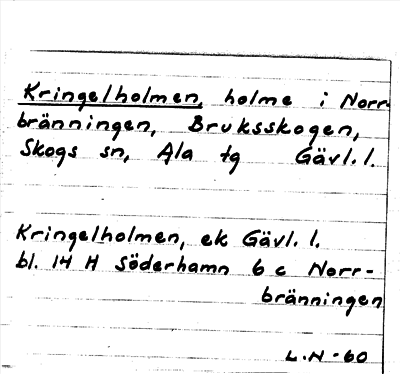 Kringelholmen, holme i Norr-
bränningen, Bruksskogen,
Skogs sn, Ala tg Gävl. l.
Kringelholmen, ek Gävl. l.
bl. 14 H Söderhamn 6 c Norr-
bränningen
L.N-60